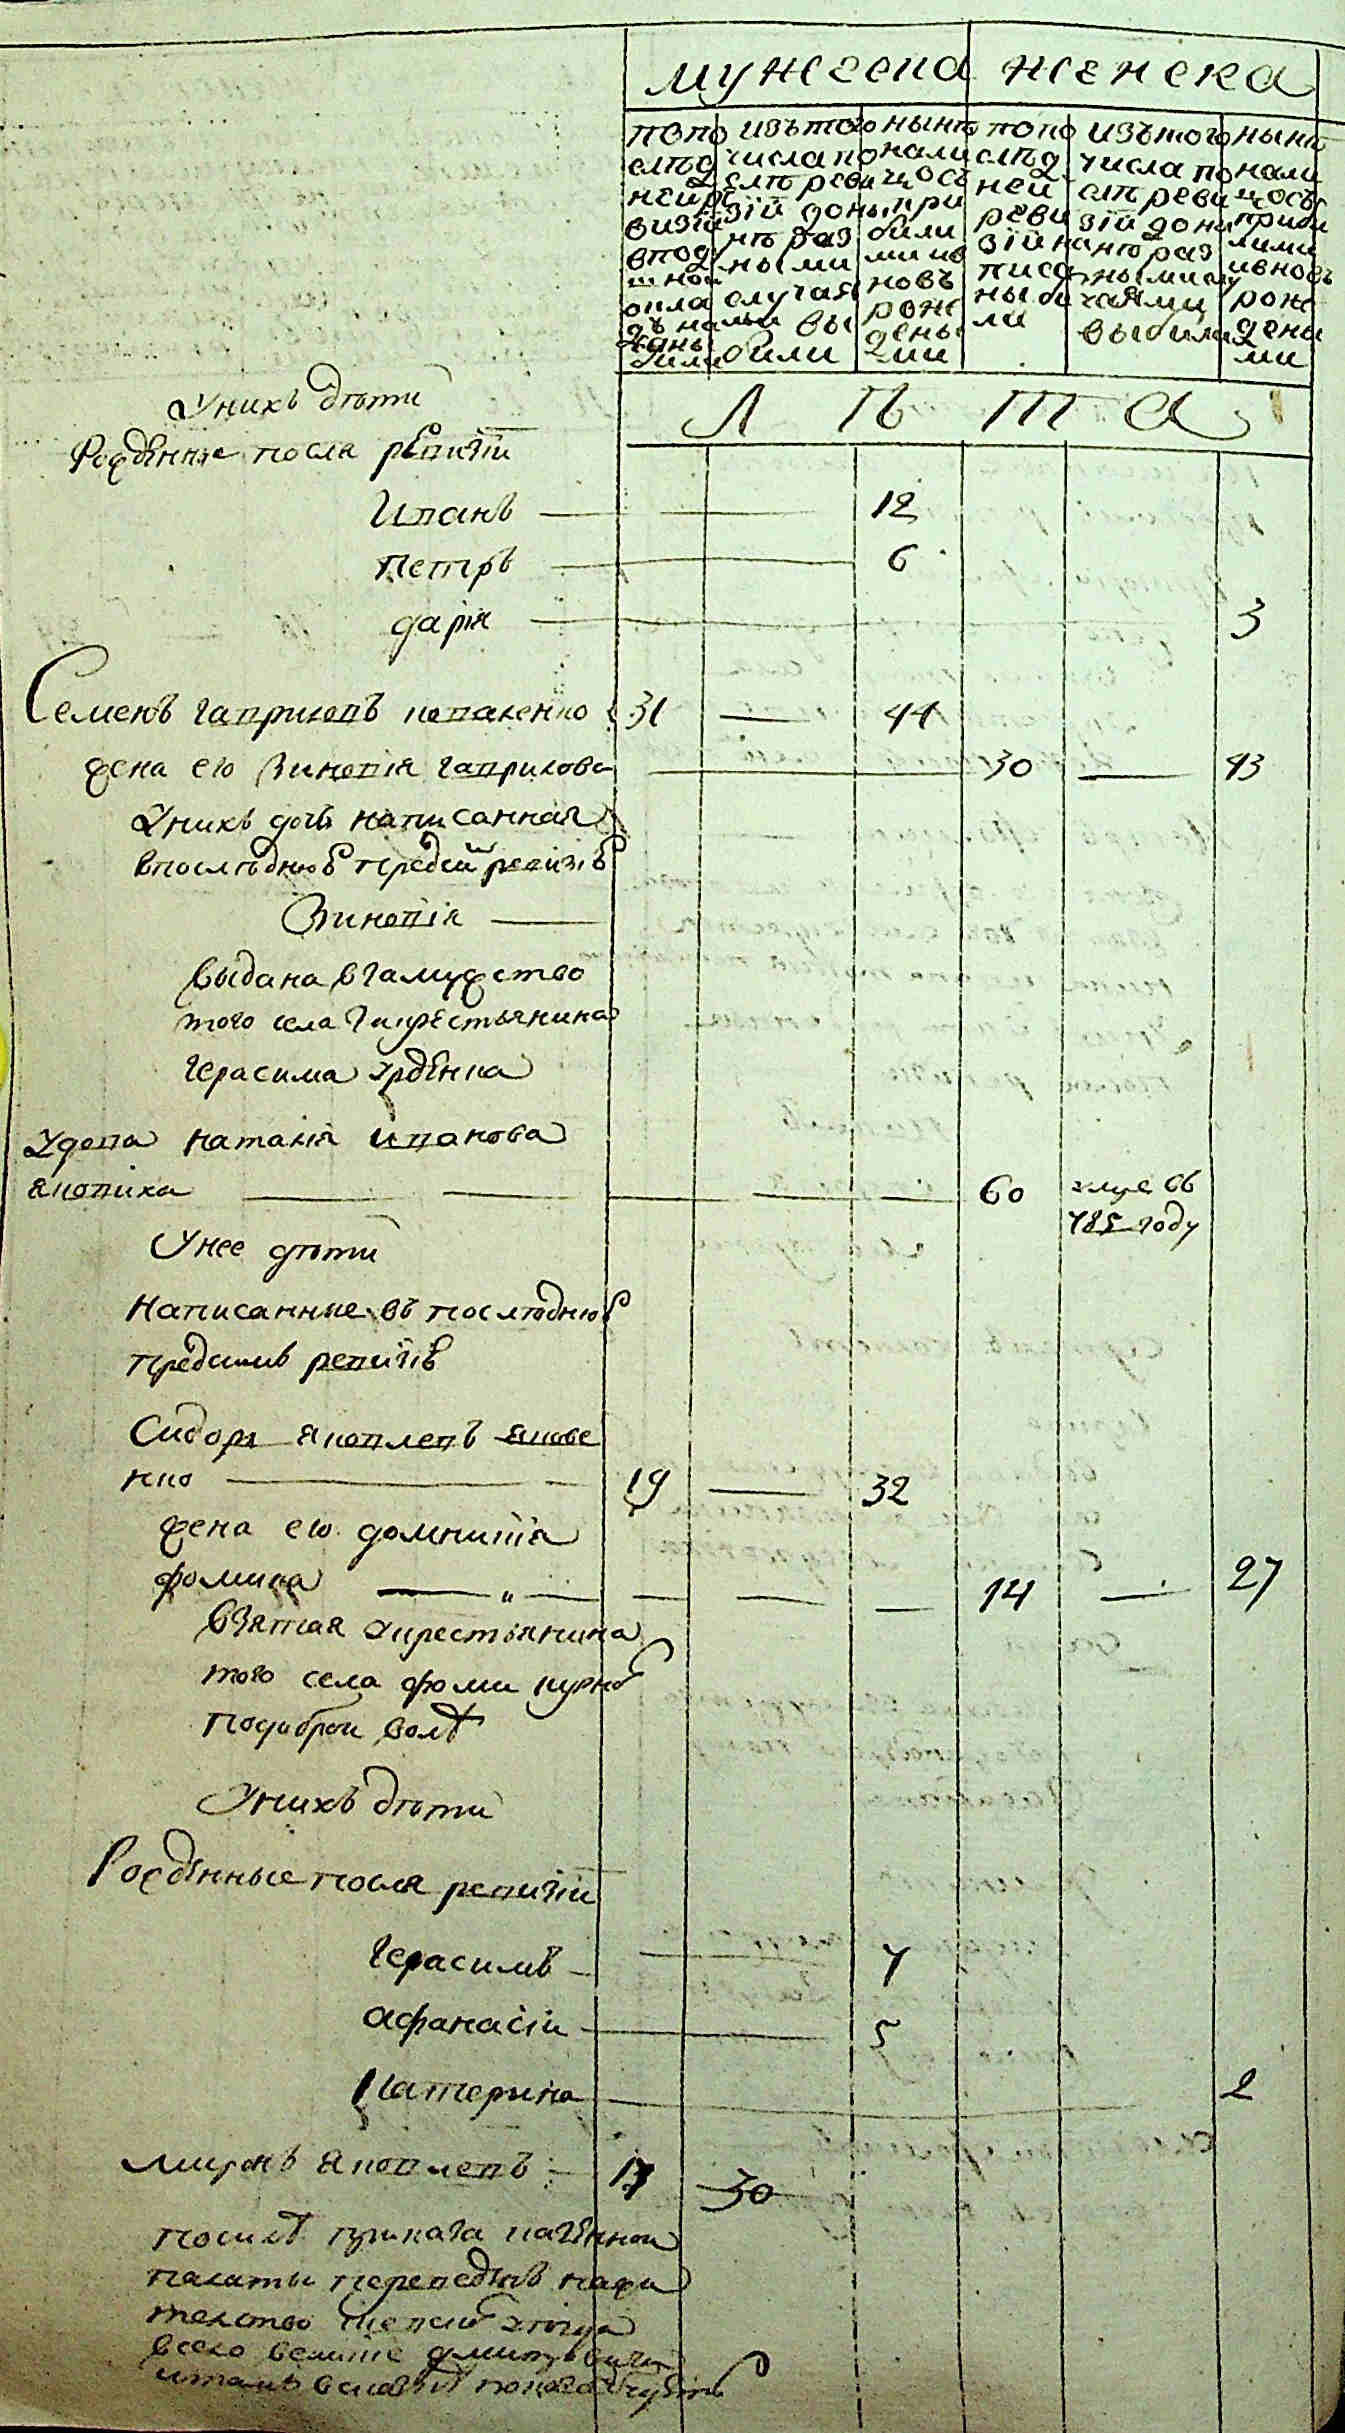 мужеска женска
по по
след
ней ре
визии
в поду
шной
окла
дъ на
писаны
были
изъ того
числа по
слѣ реви
зіи до ны
нѣ раз
ными
случая
ми вы
были
нынѣ
на лицо съ
при
были
ми и в
новь
рож
дены
ми
по по
слѣд
ней
реви
зіи на
писа
ны бы
ли
изъ того
числа по
слѣ реви
зіи до ны
нѣ раз
ными слу
чаями
выбыли
нынѣ
на ли
цо съ
прибы
лыми
и вновь
рож
дены
ми
Лѣта
У нихъ дѣти
Рожденные после ревизіи
Иванъ 12
Петръ 6
дарія 3
Семенъ гавриловъ коваленко 31 44
жена его Зиновія гаврилова 30 43
У нихъ дочь написанная
в последнюю пред сим ревизію
Зиновія
выдана в замужство
того села за крестьянина
герасима
Удова наталія иванова
яковиха 60 умре въ
785 году
У нее дѣти
Написанные въ последнюю
пред симъ ревизію
Сидоръ яковлевъ якове
нко 19 32
жена его домникія
фомина 14 27
взятая у крестьянина
того села фомы
по доброй волѣ
У нихъ дѣти
Рожденные после ревизіи
Герасимъ 7
Афанасіи 5
Катерина 2
миронъ яковлевъ 17 30
по силѣ приказа казенной
палаты переведенъ на жи
телство